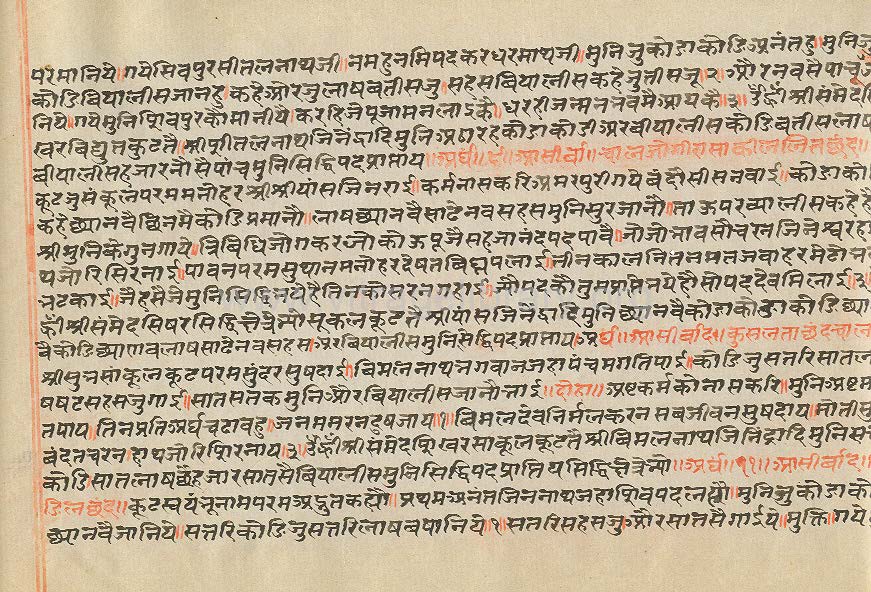 परमानिये॥गयेसिवपुरसीतलनाथजी॥नमहुनमिपदकरधरमाथजी॥मुनिजुकोडाकोडिअनंतहु॥मुनिजु
कोडिबियालीसजानहु॥कहेऔरजुलाषबतीसजु॥सहसबियालीसकहेजुतीसजू२॥औरनवसैपाचजू
निये॥गयेमुनिशिवपुरकोमानीये॥करहिजेपूजामनलाइकै॥धरहीजन्मननवमैआयकै॥३॥उँह्रीँश्रीसंमेद
षरबिद्युतकूटतै॥श्रीशीतलनाथजिनेंद्रादिमुनिअठारहकोडाकोडीअरबीयालीसकोडिबतीसलाष
बीयालीसहजारनौसैपांचमुनिसिद्धिपदप्राप्ताय॥अर्घ॥आसीर्वा॥चालजोगीरासाकीललितछंद॥
कूटजुसंकूलपरममनोहरश्रीश्रीयांसजिनराई॥कर्मनासकरिअमरपुरीगयेबंदौसीसनवाई॥कोडाको
कहेछ्यानवैछिनमेकोडिप्रमानौ॥लाषछ्यानवैसाढेनवसहसमुनिसुरजानौ॥ताऊपरब्यालीसकहेहै
श्रीमुनिकेगुनगाये॥त्रिबिधिजोगकरजोकोऊपूजैसहजानंदपदपावै॥
थजोरिसिरनाई॥पावनपरमसुथानमनोहरदेषतबिघ्नपलाई॥तीनकाल
नटकाई॥जैहमैजेमुनिसिद्धिभयेहैतिनकोसरनगहाई॥
ह्रीँश्रीसंमेदसिषरसिद्धिक्षेत्रेभ्योसंकूलकूटतैश्रीयांसजिनेंद्रादिमुनिछ्यानवैकोडाकोडाकोडिछ्या
वैकोडिछ्याणवलाषसाढेनवसहसअरबियालीसमुनिसिद्धिपदप्राप्ताय॥अर्घ॥आसीर्बाद॥कुसलताछंदचाल
श्रीसुभसांकूलकूटपरमसुंदरसुषदाई॥बिमलनाथभगवानजहांपंचमगतिपाई॥कोडिजुसतरिसातल
षषटसहसजुगाई॥सातसतकमुनिऔरबियालीसजानौभाई॥दोहा॥अष्टकर्मकोनासकरि॥मुनिअष्टम
तपाय॥तिनप्रतिअर्घचढावहु॥जनममरनदुषजाय१॥बिमलदेवनिर्मलकरनसबजीवनसुषदाय॥मोतीसु
बंदतचरनहाथजोरिशिरनाय॥३॥उँह्रीँश्रीसंमेदशिखरसांकूलकूटतैश्रीबिमलनाथजिनेंद्रादिमुनिसत
कोडिसातलाषछैहजारसातसैबियालीसमुनिसिद्धिपदप्राप्तियसिद्धिक्षेत्रेभ्यो॥अर्घ॥११॥आसीर्वाद॥
डिलछंद॥कूटस्वयंभूनामपरमअद्भुतकह्यो॥प्रथमअनंतजिननाथजहाशिवपदलह्यौ॥मुनिजुकोडाको
छ्यानवैजानिये॥सत्तरिकोडिजुसत्तरिलाषबषानिये॥१॥सतरिसहसजुऔरसातसैगाईये॥मुक्तिगये